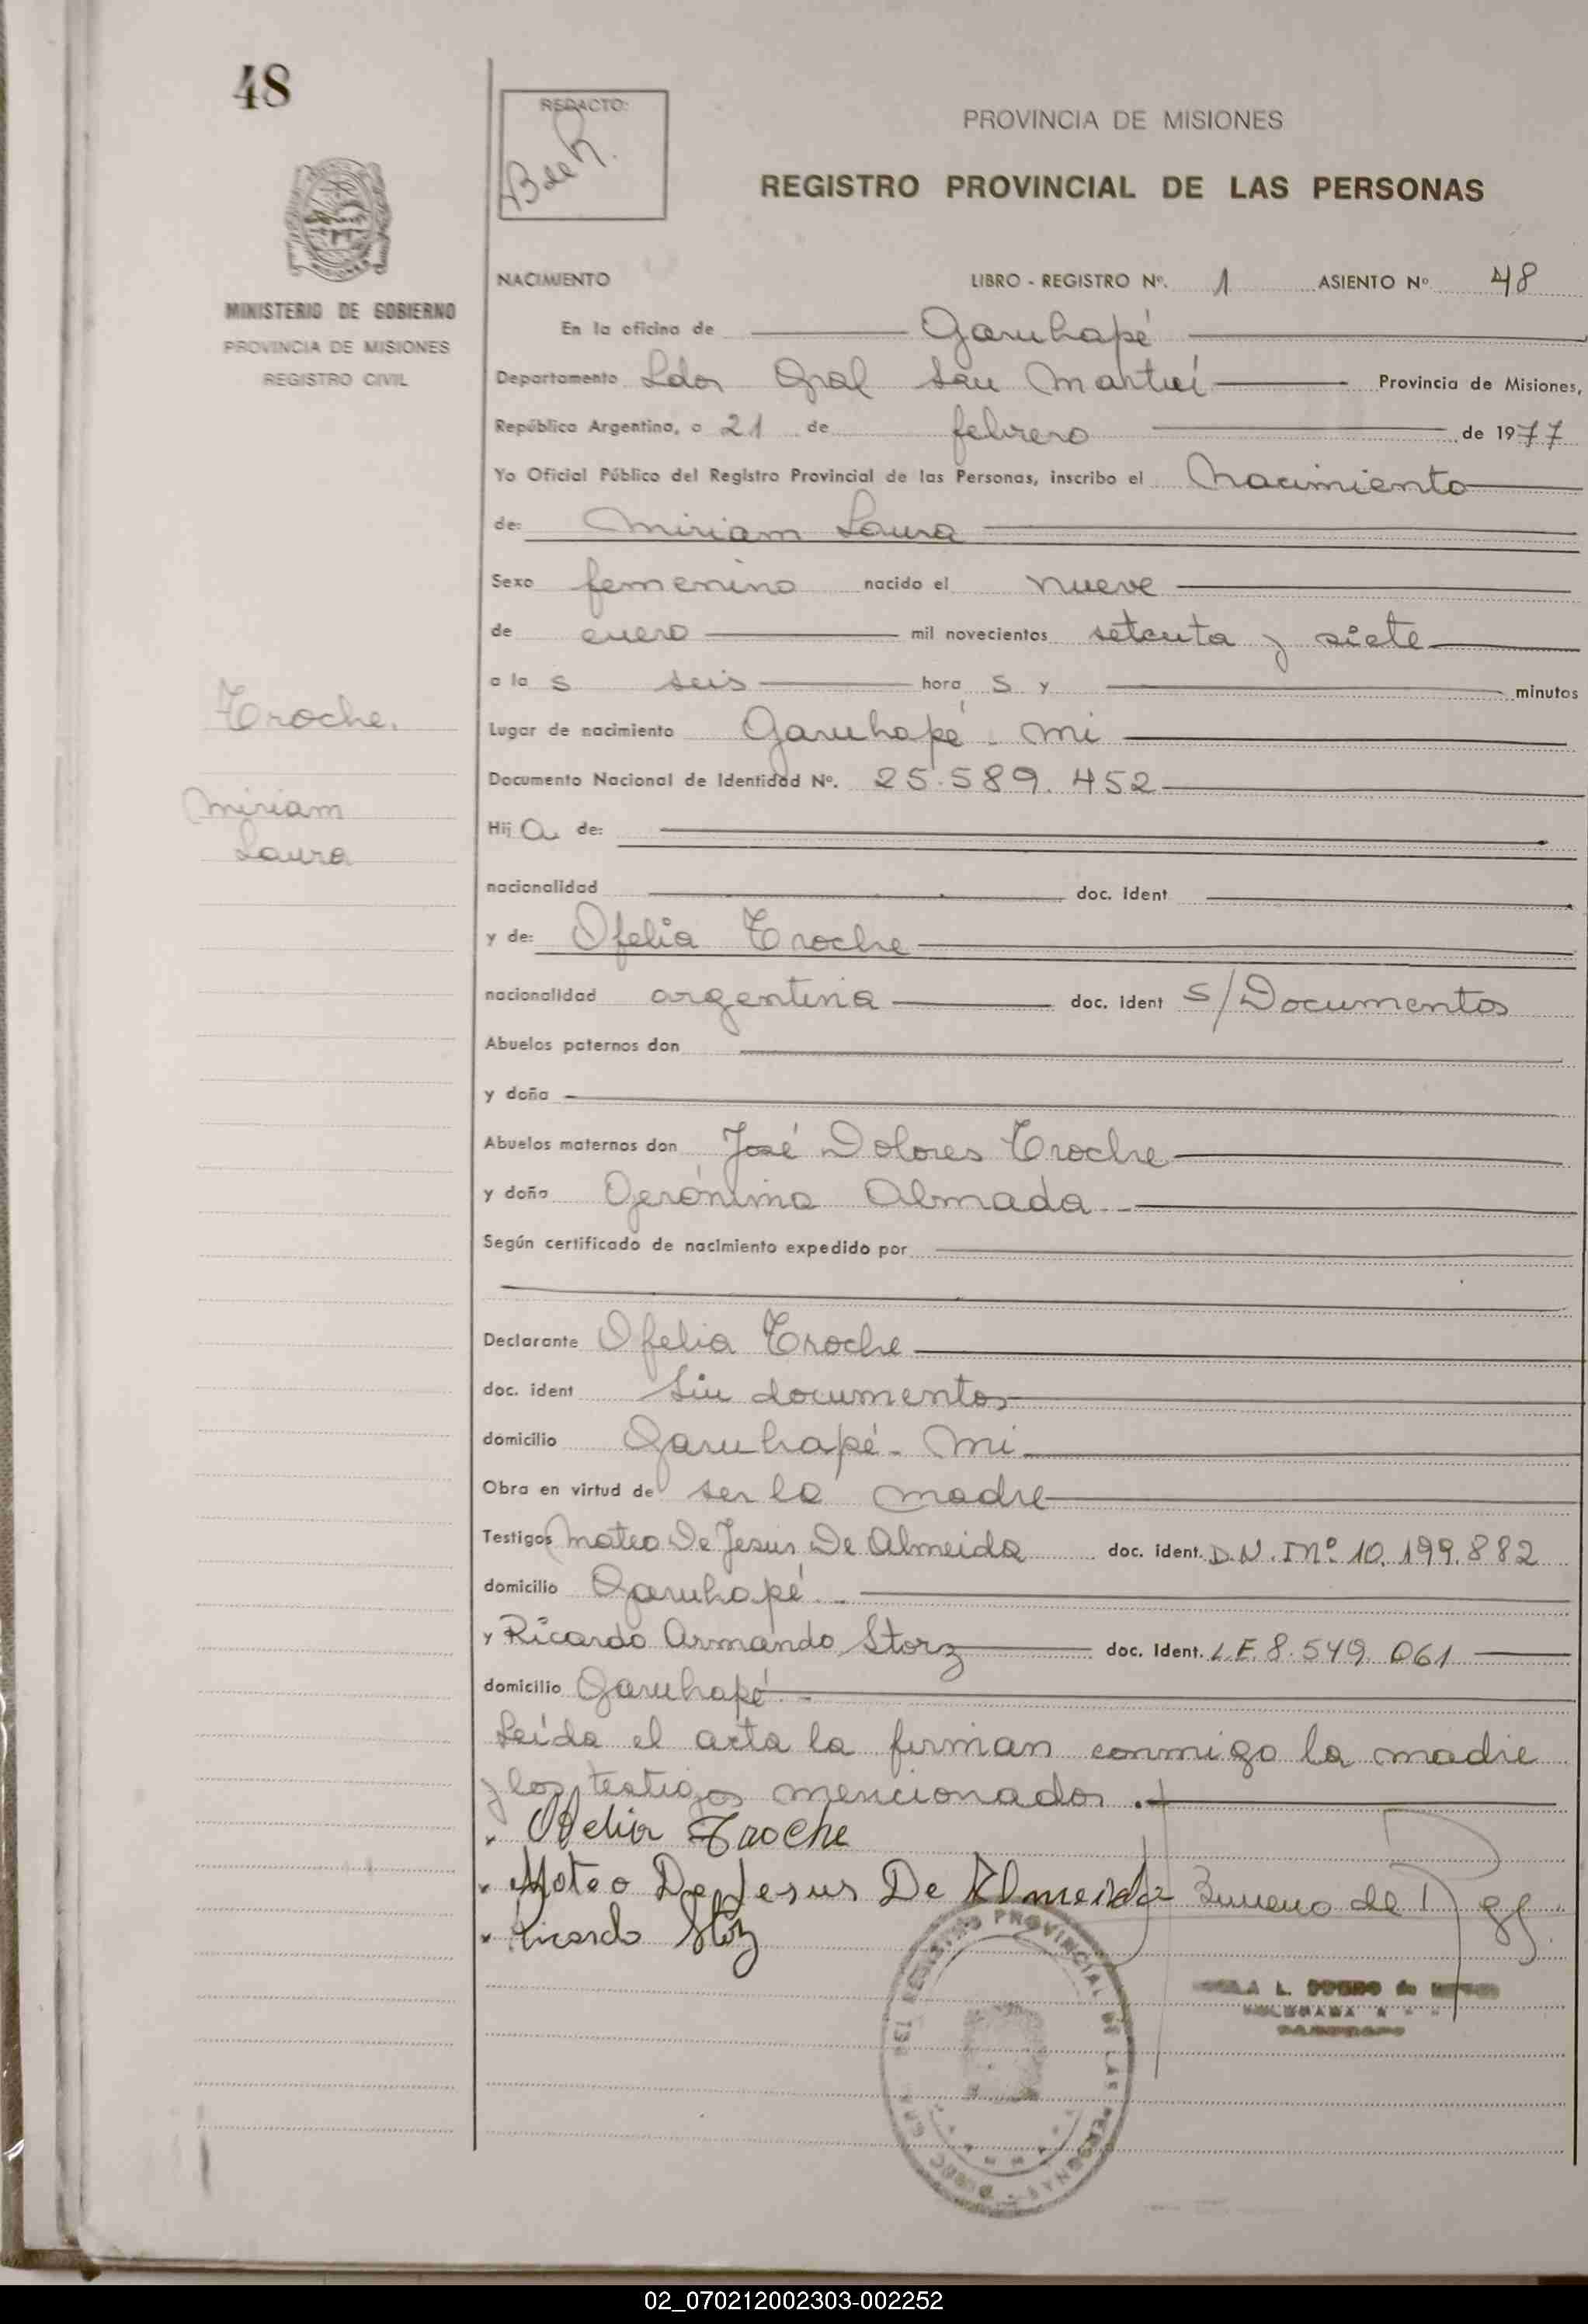 48
REDACTO:
B de R.
PROVINCIA DE MISIONES
REGISTRO PROVINCIAL DE LAS PERSONAS
MINISTERIO DE GOBIERNO
PROVINCIA DE MISIONES
REGISTRO CIVIL
NACIMIENTO LIBRO - REGISTRO Nº. 1 ASIENTO Nº 48
En la oficina de Garuhapé
Departamento Ldor Gral San Martín Provincia de Misiones,
República Argentina, a 21 de febrero de 1977
Yo Oficial Público del Registro Provincial de las Personas, inscribo el Nacimiento
de: Miriam Laura
Sexo femenino nacido el nueve
de enero mil novecientos setenta y siete
a la s seis hora s y minutos
Troche.
Miriam
Laura
Lugar de nacimiento Garuhapé - Mi
Documento Nacional de Identidad Nº. 25.589.452
Hij a de:
nacionalidad doc. ident
y de: Ofelia Troche
nacionalidad argentina doc. ident S/Documentos
Abuelos paternos don
y doña
Abuelos maternos don José Dolores Troche
y doña Gerónima Almada
Según certificado de nacimiento expedido por
Declarante Ofelia Troche
doc. ident Sin documentos
domicilio Garuhapé - Mi
Obra en virtud de ser la madre
Testigos Mateo De Jesus De Almeida doc. ident. D.N.I Nº 10.199.882
domicilio Garuhapé
y Ricardo Armando Storz doc. Ident. L.E. 8.549.061
domicilio Garuhapé
Leída el acta la firman conmigo la madre
y los testigos mencionados.
Ofelia Troche
Mateo De Jesus De Almeida
Ricardo Storz
REGISTRO PROVINCIAL DE LAS PERSONAS
02_070212002303-002252